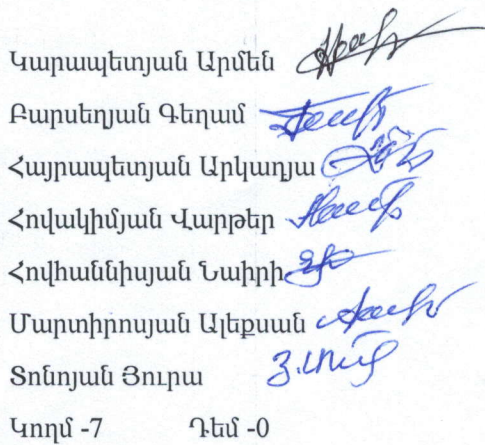 Կարապետյան Արմեն
Բարսեղյան Գեղամ
Հայրապետյան Արկադյա
Հովակիմյան Վարթեր
Հովհաննիսյան Նաիրի
Մարտիրոսյան Ալեքսան
Տոնոյան Յուրա
Կողմ -7 Դեմ -0